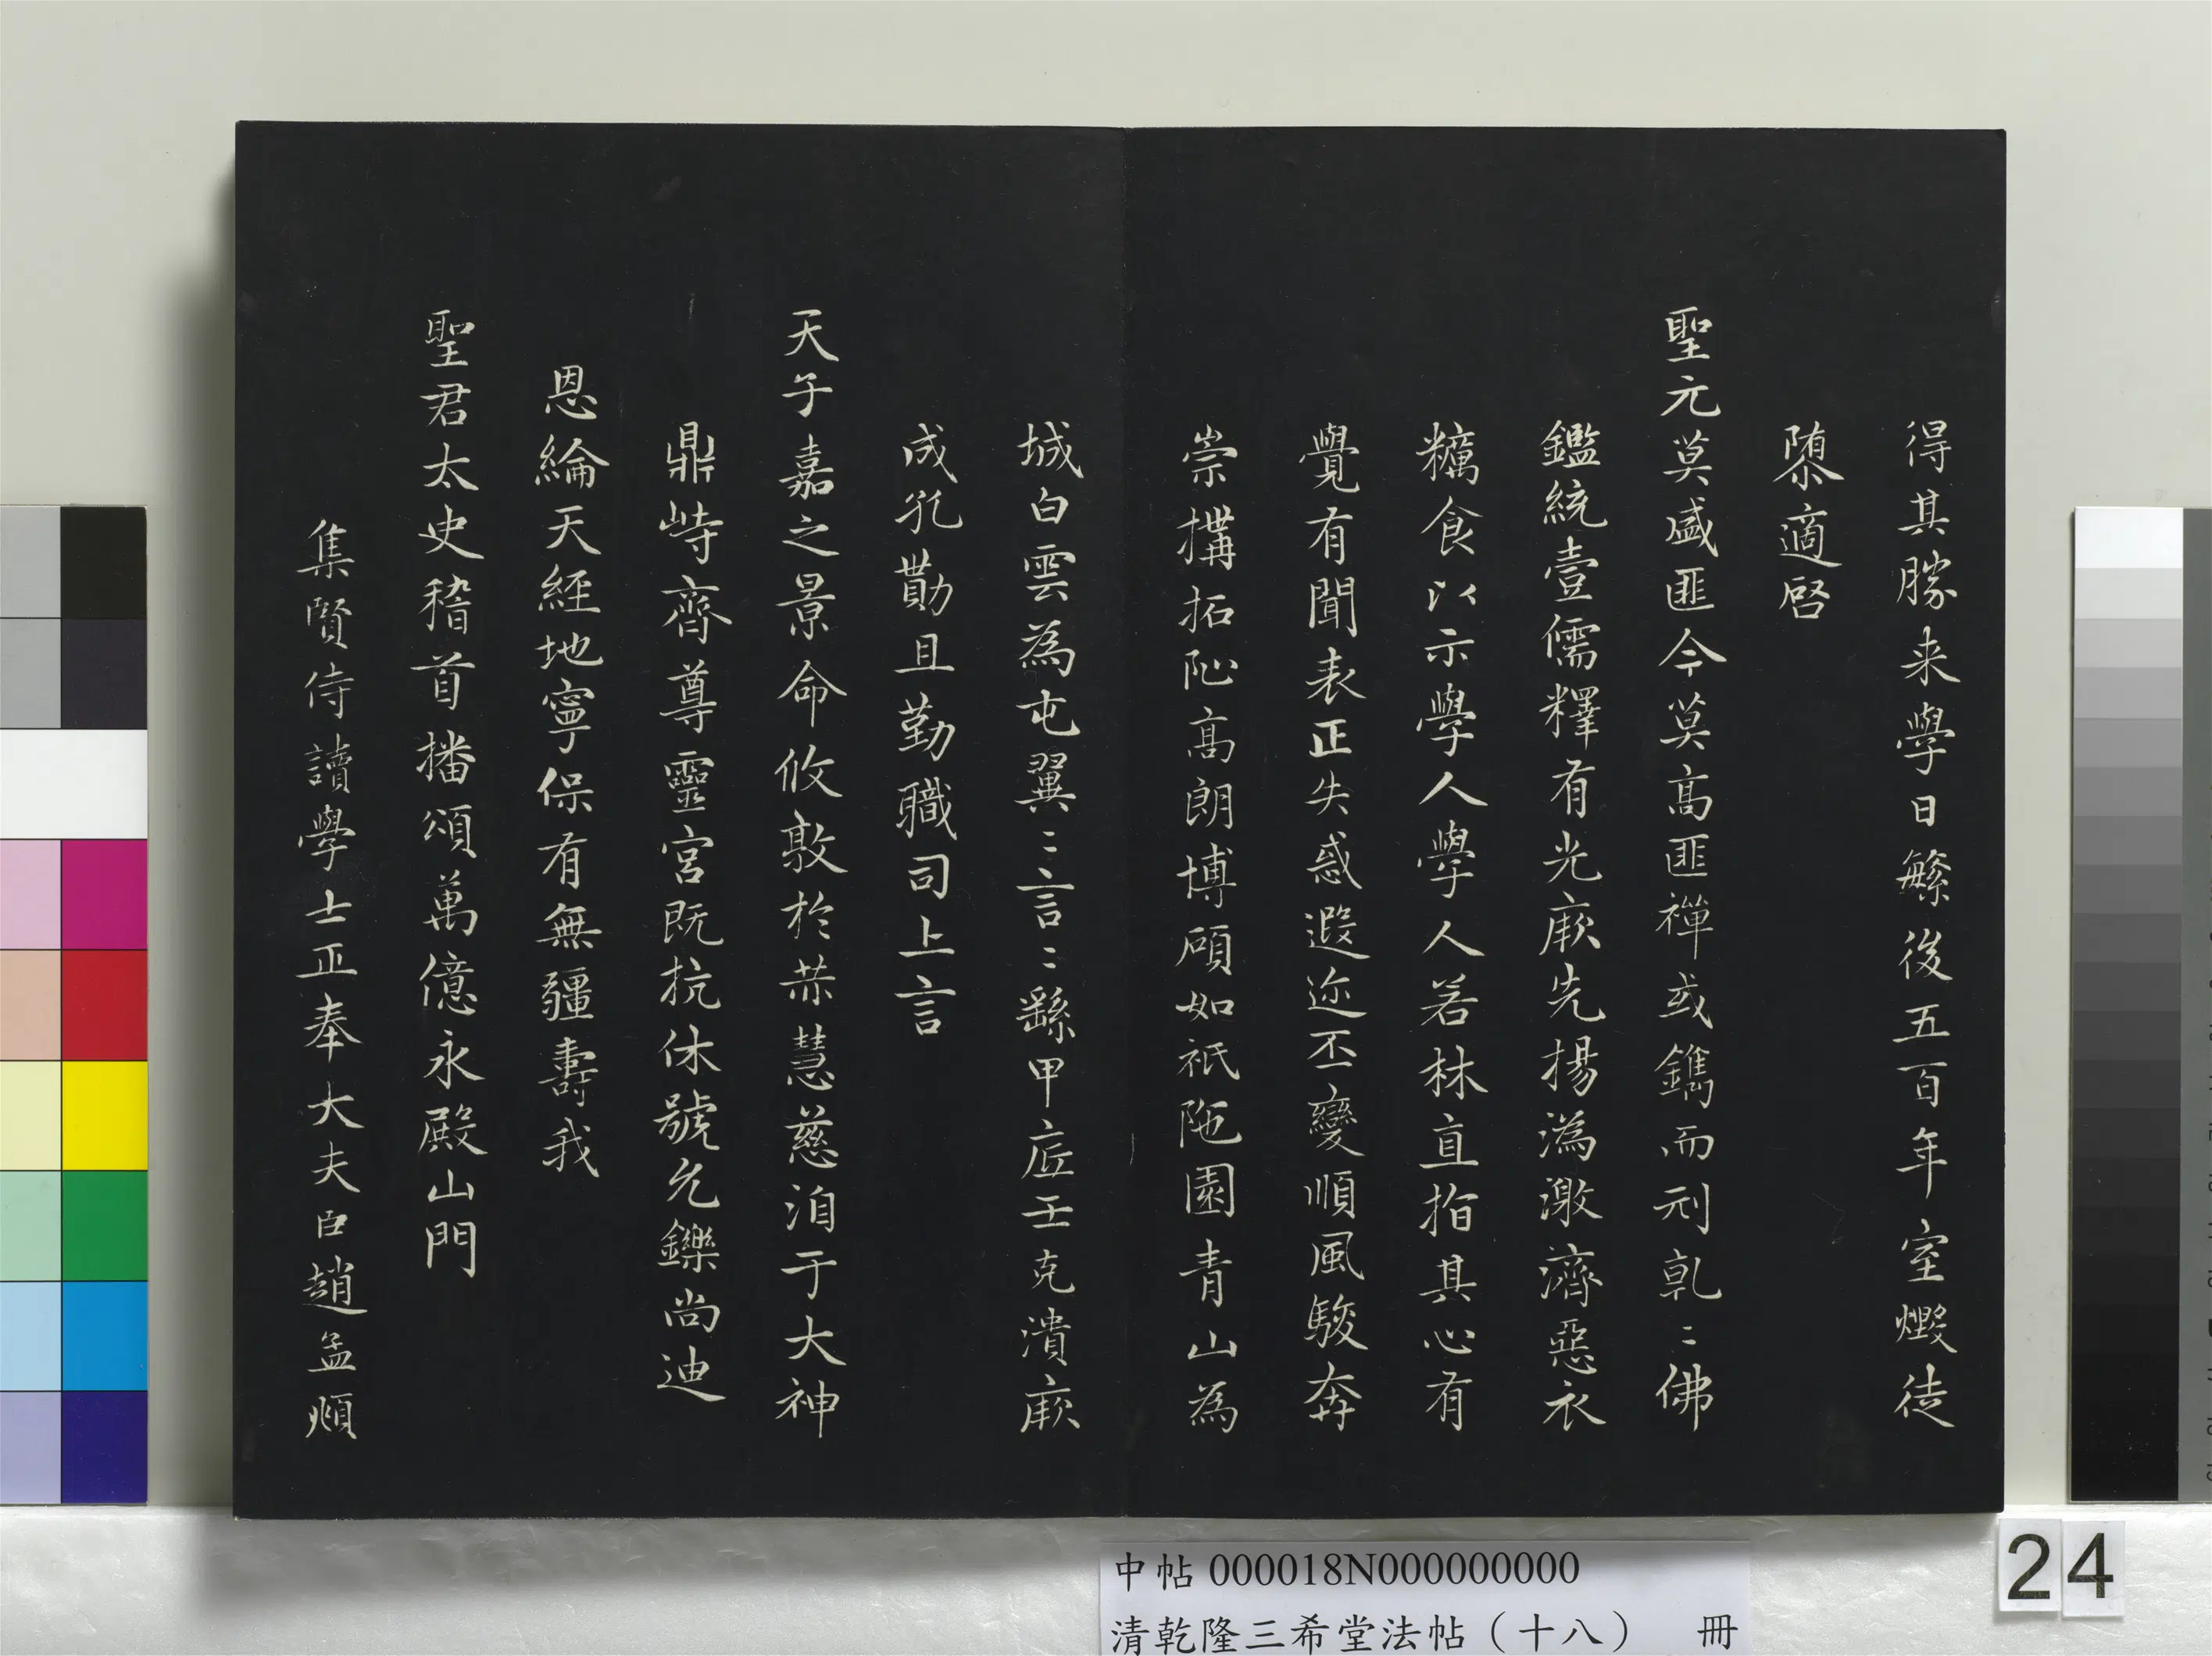 得其勝来學日繁後五百年室燬徒
隳適啓
聖元莫盛匪今莫高匪禪或鐫而刓乹〻佛
鑑統壹儒釋有光厥先揚溈激濟惡衣
糲食以示學人學人若林直指其心有
覺有聞表正失惑遐迩丕變順風駿奔
崇搆拓阯高朗博碩如祇陁園青山為
城白雲為屯翼〻言〻繇甲庀壬克潰厥
成孔勩且勤職司上言
天子嘉之景命攸敦於赫慧慈洎于大神
鼎峙齊尊靈宮既抗休號允鑠尚迪
恩綸天經地寧保有無疆壽我
聖君太史稽首播頌萬億永殿山門
集賢侍讀學士正奉大夫臣趙孟頫
中帖 000018N000000000
清乾隆三希堂法帖（十八） 冊
24